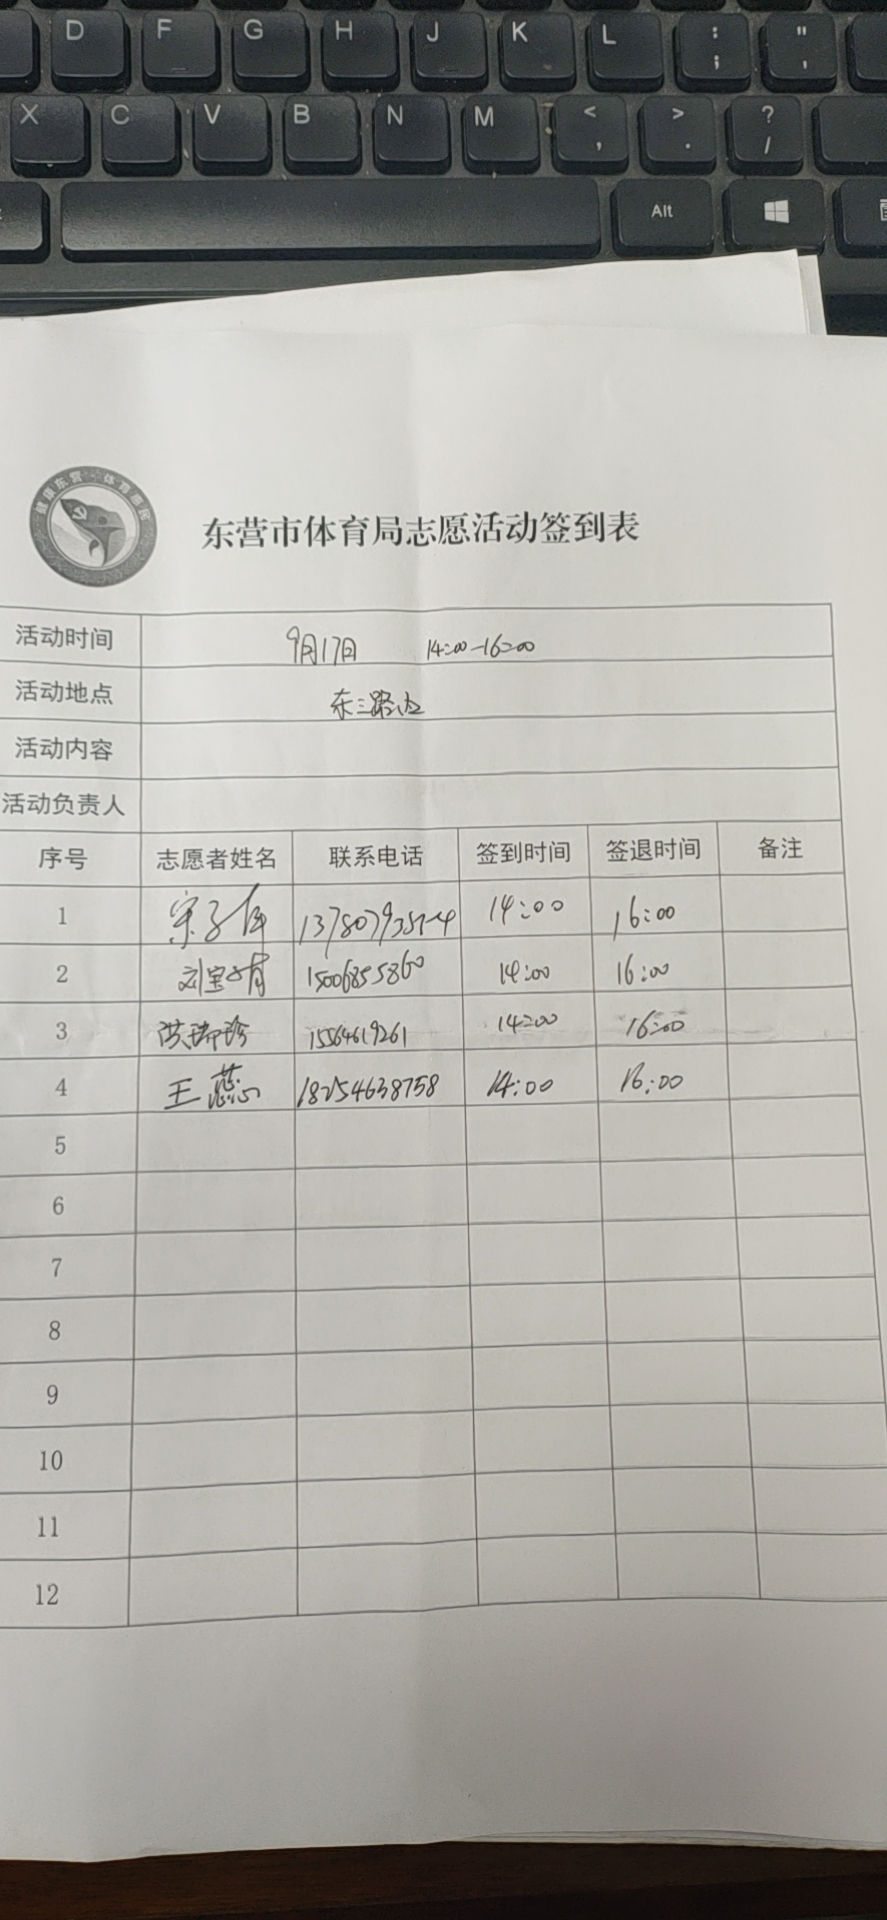 D F G H J K L : ; " '
X C V B N M < , > . ? /
Alt
健康东营 体育惠民
东营市体育局志愿活动签到表
活动时间 9月17日 14:00-16:00
活动地点 东三路边
活动内容
活动负责人
序号 志愿者姓名 联系电话 签到时间 签退时间 备注
1 宋子 14:00 16:00
2 刘宝 15006855860 14:00 16:00
3 洪瑞珍 15564619261 14:00 16:00
4 王蕊 18254638758 14:00 16:00
5
6
7
8
9
10
11
12